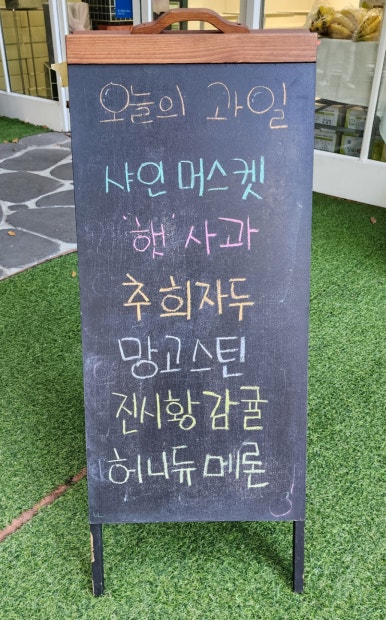 오늘의 과일
샤인머스켓
'햇' 사과
추희자두
망고스틴
진시황감귤
허니듀메론